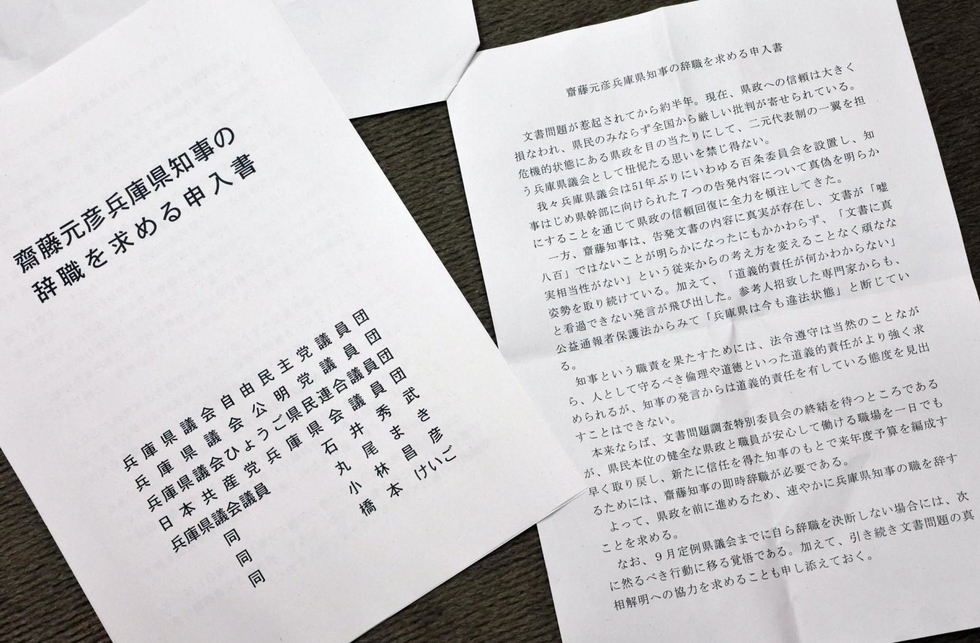 齋藤元彦兵庫県知事の
辞職を求める申入書
兵庫県議会自由民主党議員団
兵庫県議会公明党議員団
兵庫県議会ひょうご県民連合議員団
日本共産党兵庫県会議員団
兵庫県議会議員 石井秀武
同 丸尾まき
同 小林昌彦
同 橋本けいご
齋藤元彦兵庫県知事の辞職を求める申入書
文書問題が惹起されてから約半年。現在、県政への信頼は大きく
損なわれ、県民のみならず全国から厳しい批判が寄せられている。
危機的状態にある県政を目の当たりにして、二元代表制の一翼を担
う兵庫県議会として忸怩たる思いを禁じ得ない。
我々兵庫県議会は51年ぶりにいわゆる百条委員会を設置し、知
事はじめ県幹部に向けられた７つの告発内容について真偽を明らか
にすることを通じて県政の信頼回復に全力を傾注してきた。
一方、齋藤知事は、告発文書の内容に真実が存在し、文書が「嘘
八百」ではないことが明らかになったにもかかわらず、「文書に真
実相当性がない」という従来からの考え方を変えることなく頑なな
姿勢を取り続けている。加えて、「道義的責任が何かわからない」
と看過できない発言が飛び出した。参考人招致した専門家からも、
公益通報者保護法からみて「兵庫県は今も違法状態」と断じてい
る。
知事という職責を果たすためには、法令遵守は当然のことなが
ら、人として守るべき倫理や道徳といった道義的責任がより強く求
められるが、知事の発言からは道義的責任を有している態度を見出
すことはできない。
本来ならば、文書問題調査特別委員会の終結を待つところである
が、県民本位の健全な県政と職員が安心して働ける職場を一日でも
早く取り戻し、新たに信任を得た知事のもとで来年度予算を編成す
るためには、齋藤知事の即時辞職が必要である。
よって、県政を前に進めるため、速やかに兵庫県知事の職を辞す
ことを求める。
なお、９月定例県議会までに自ら辞職を決断しない場合には、次
に然るべき行動に移る覚悟である。加えて、引き続き文書問題の真
相解明への協力を求めることも申し添えておく。